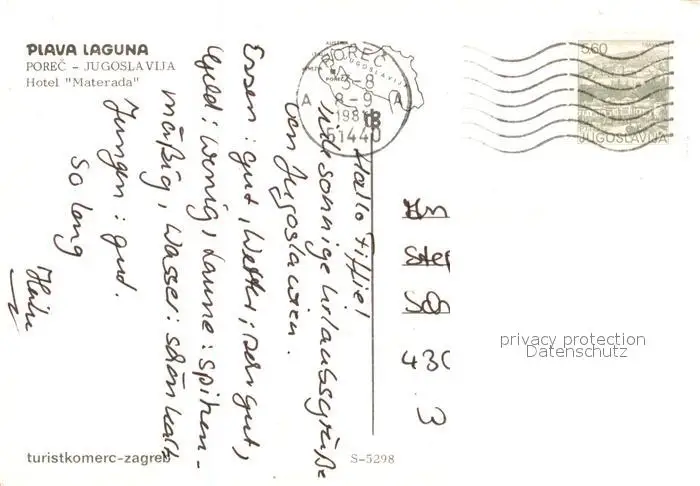 PLAVA LAGUNA
POREČ – JUGOSLAVIJA
Hotel "Materada"
Hallo Fiffie!
sonnige Urlaubsgrüße
von Jugoslawien.
Essen: gut, Wetter: sehr gut,
Geld: wenig, Laune: spitzen-
mäßig, Wasser: schön kalt
Jungen: gut.
So long
Heike
POREČ
8-9
1981
51440
A
A
5,60
JUGOSLAVIJA
430
3
privacy protection
Datenschutz
turistkomerc-zagreb
S-5298